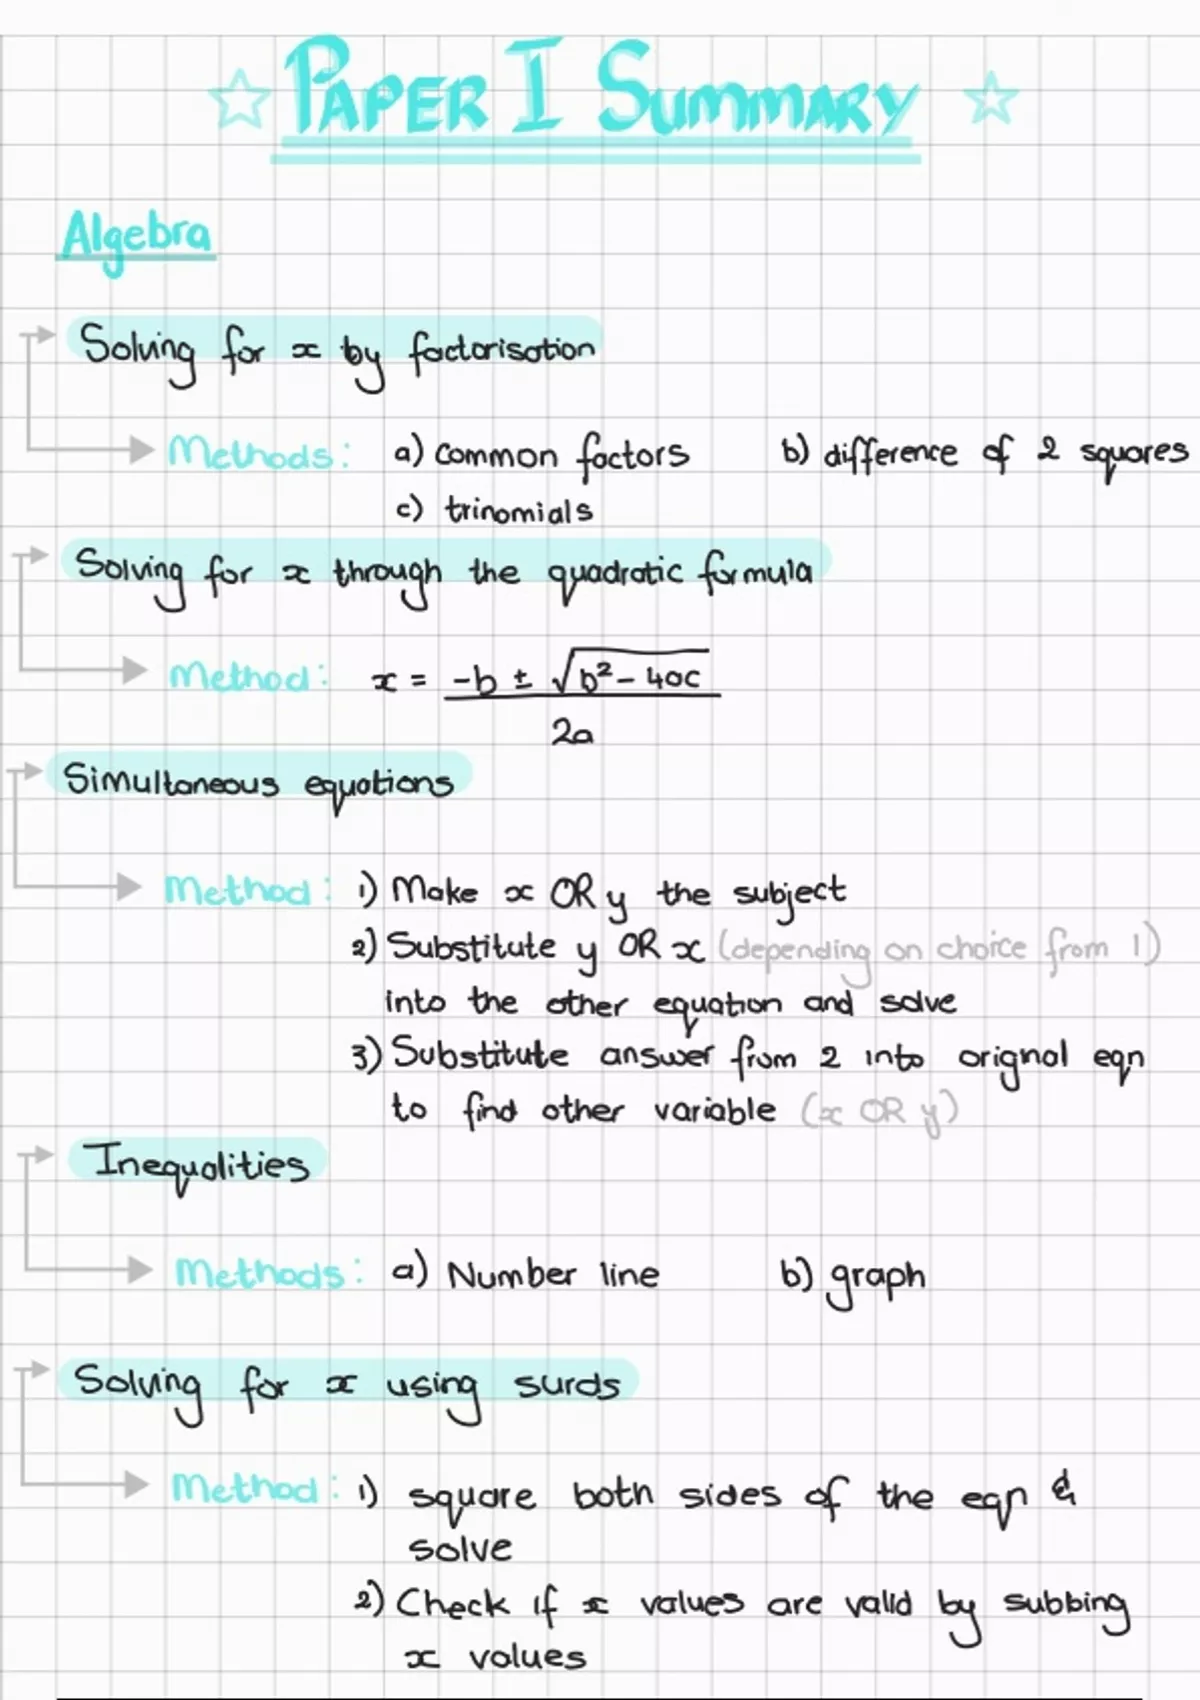 ☆ PAPER I SUMMARY ☆
Algebra
Solving for x by factorisation
Methods: a) common factors b) difference of 2 squares
c) trinomials
Solving for x through the quadratic formula
Method: x = -b ± √b² - 4ac
2a
Simultaneous equations
Method: 1) Make x OR y the subject
2) Substitute y OR x (depending on choice from 1)
into the other equation and solve
3) Substitute answer from 2 into orignal eqn
to find other variable (x OR y)
Inequalities
Methods: a) Number line b) graph
Solving for x using surds
Method: 1) square both sides of the eqn &
solve
2) Check if x values are valid by subbing
x values